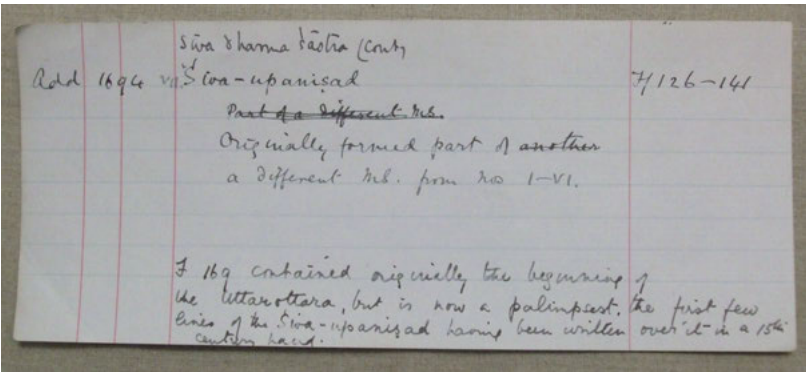 Śiva dharma śāstra (cont)
Add 1694 vii Śiva-upaniṣad ff 126-141
Part of a different MS.
Originally formed part of another
a different MS. from nos I-VI.
F 169 contained originally the beginning of
the Uttarottara, but is now a palimpsest, the first few
lines of the Śiva-upaniṣad having been written over it in a 15th
century hand.